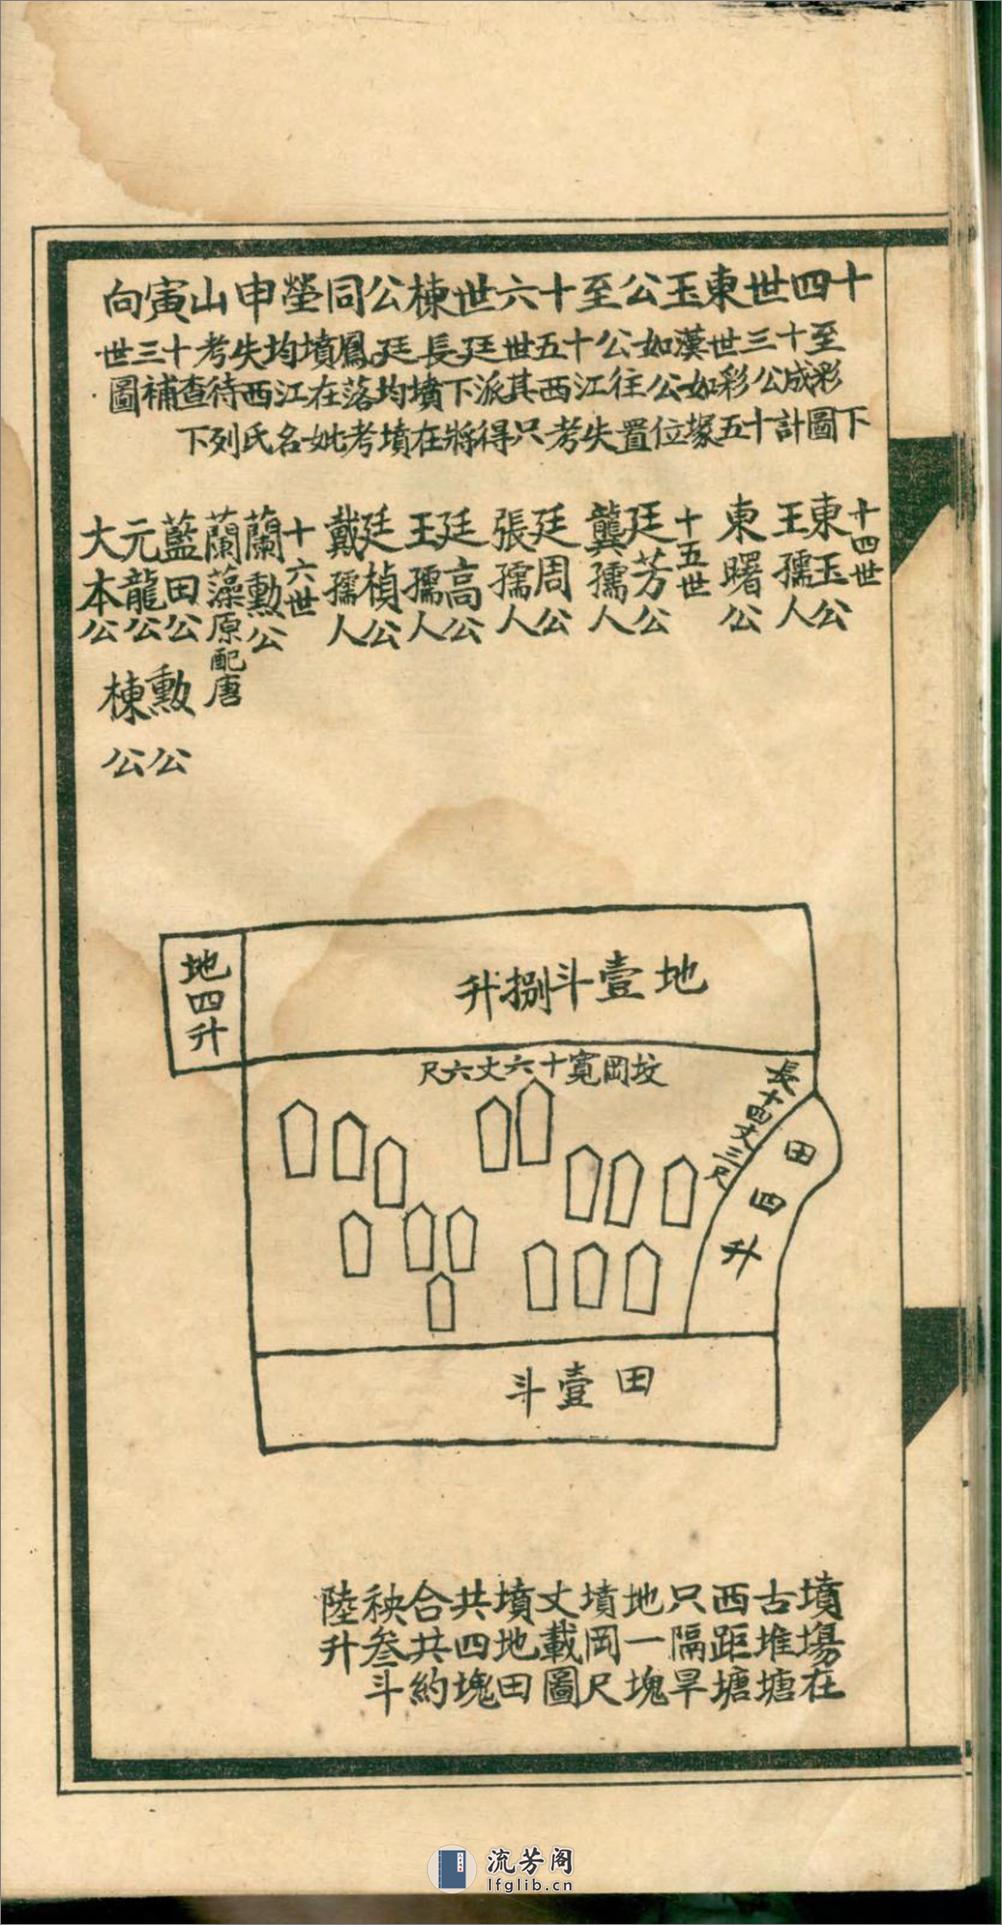 十四世東玉公至十六世棟公同塋申山寅向
至十三世漢如公十五世廷長廷鳳墳均失考十三世
彩成公彩如公往江西其派下墳均落在江西待查補圖
下圖計十五塚位置失考只得將在墳考妣名氏列下
十四世
東玉公
王孺人
東曙公
十五世
廷芳公
龔孺人
廷周公
張孺人
廷高公
王孺人
廷楨公
戴孺人
十六世
蘭勳公
蘭藻原配唐
藍田公
元龍公
大本公
勲公
棟公
地壹斗捌升
地四升
坟岡寬十六丈六尺
長十四丈三尺
田四升
田壹斗
墳塲在
古堆塘
西距塘
只隔旱
地一塊
墳岡尺
丈載圖
墳地田
共四塊
合共約
秧叁斗
陸升
流芳阁
lfglib.cn